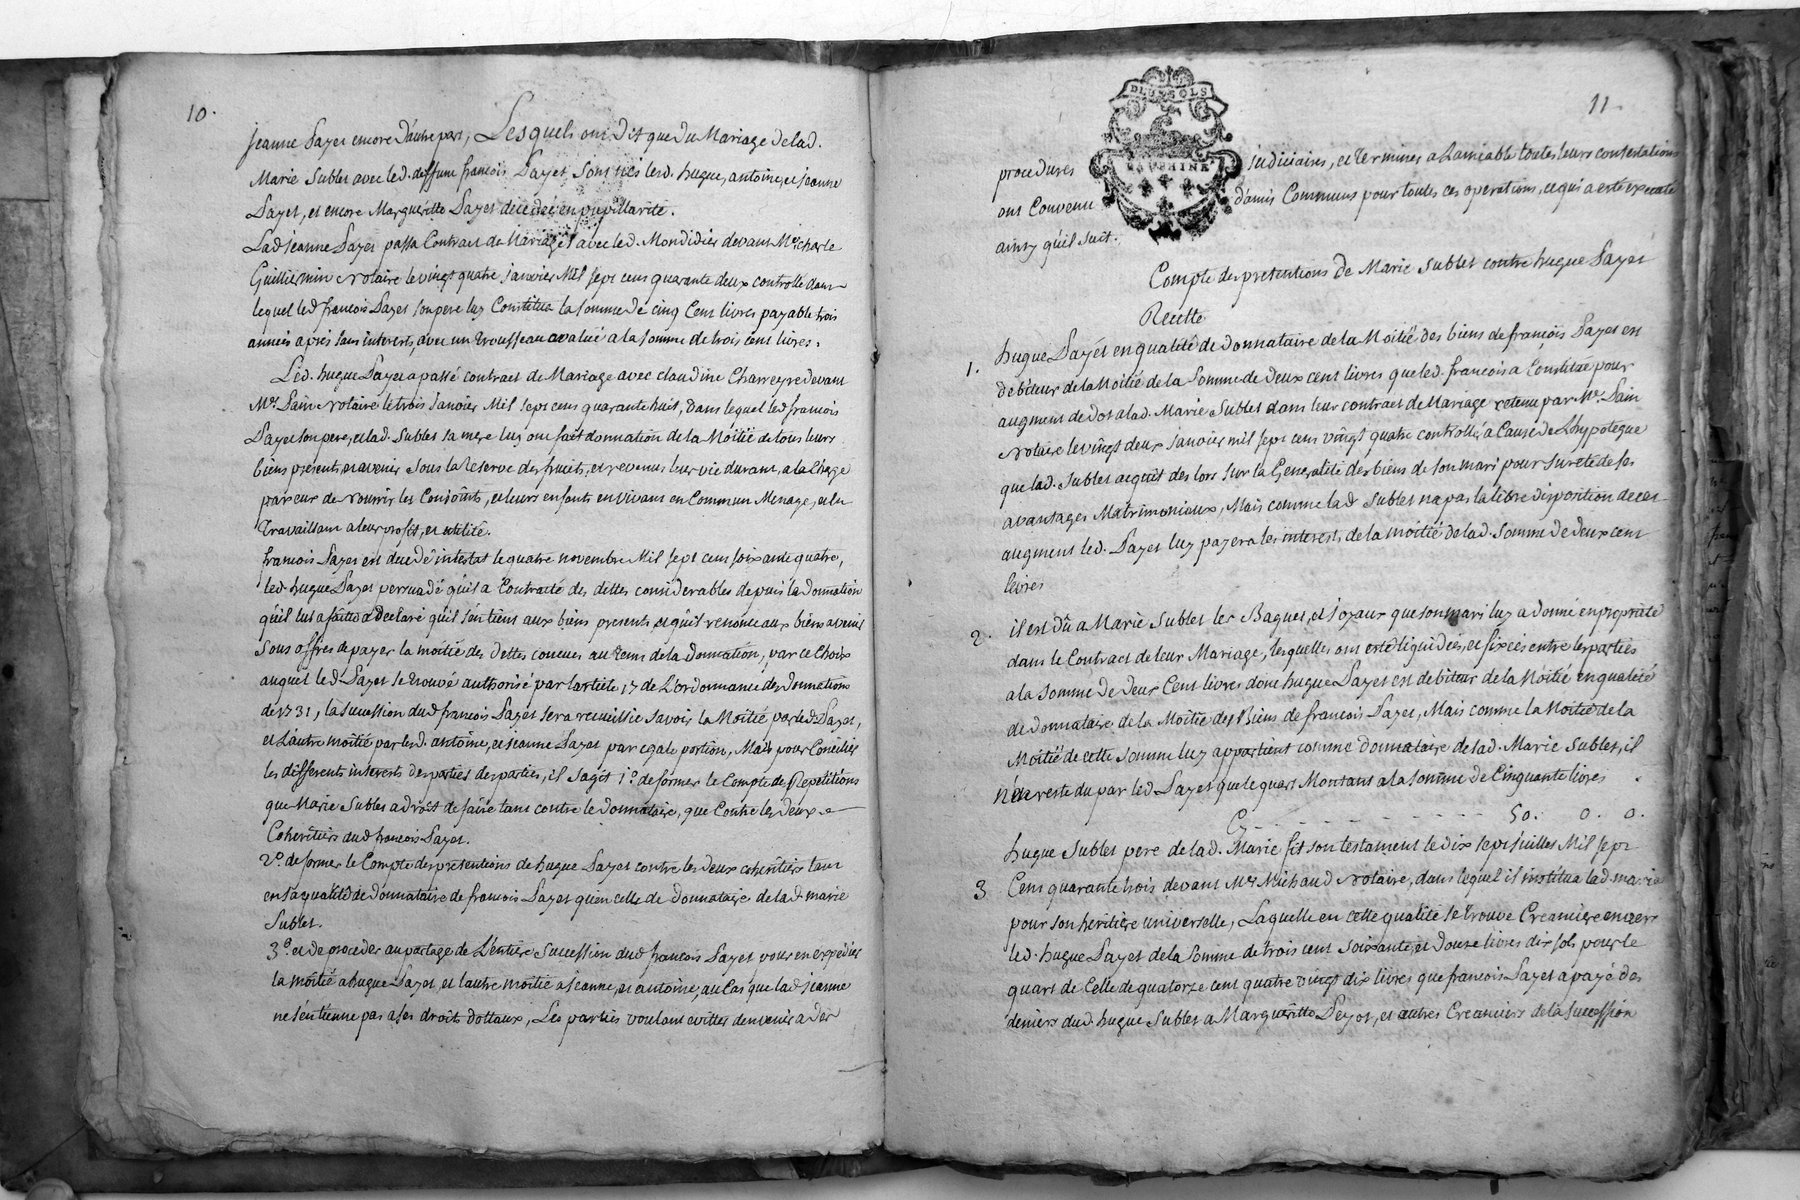 10.
jeanne Payet encore d'autre part, Lesquels ont dit que du Mariage de lad.
Marie Sublet avec led. deffunt françois Payet, sont nés lesd. hugue, antoine, et jeanne
Payet, et encore Margueritte Payet decedée en pupillarité.
Lad jeanne Payet passa Contract de Mariage avec led. Mondidier devant Me charle
Guilliermin Notaire le vingt quatre janvier Mil sept cent quarante deux controllé dans
lequel led françois Payet son pere luy Constitua la somme de cinq Cent livres payable trois
années après sans interests, avec un trousseau avalué a la somme de trois cent livres.
Led. hugue Payet a passé contract de Mariage avec claudine Charreyre devant
Me. Pain Notaire le trois Janvier Mil sept cent quarante huit, dans lequel led françois
Payet son pere, et lad. Sublet sa mere luy ont fait donnation de la Moitié de tous leurs
biens presents, et avenir sous la reserve des fruits, et revenus leur vie durant, a la Charge
par eux de nourrir les Conjoints, et leurs enfants en vivant en Commun Menage, et en
travaillant a leur profit, et utilité.
françois Payet est decedé intestat le quatre novembre Mil sept cent soixante quatre,
led. hugue Payet persuadé qu'il a Contracté des dettes considerables depuis la donnation
qu'il lui a faitte a declaré qu'il s'en tient aux biens presents, et qu'il renonce aux biens avenir
sous offres de payer la moitié des dettes concues au tems de la donnation, par ce Choix
auquel led. Payet se trouve authorisé par l'article 17 de L'ordonnance des donnations
de 1731, la succession dud françois Payet sera recueillie savoir la Moitié par led. Payet,
et L'autre moitié par lesd. antoine, et jeanne Payet par egale portion, Mais pour Concilier
les differents interests des parties des parties, il s'agit 1.° de former le Compte de Repetitions
que Marie Sublet a droit de faire tant contre le donnataire, que Contre les deux
Coheritiers dud françois Payet.
2.° de former le Compte des pretentions de hugue Payet contre les deux coheritiers tant
en sa qualité de donnataire de françois Payet qu'en celle de donnataire de lad marie
Sublet.
3.° et de proceder au partage de L'entiere Succession dud françois Payet pour en expedier
la moitié a hugue Payet, et l'autre moitié a jeanne, et antoine, au Cas que lad jeanne
ne s'en tienne pas a ses droits dottaux, Les parties voulant evitter d'en venir a des
11.
DEUX SOLS
DAUPHINE
procedures judiciaires, et terminer a L'amiable toutes leurs contestations
ont Convenu d'amis Communs pour toutes ces operations, ce qui a esté executé
ainsy qu'il suit.
Compte des pretentions de Marie Sublet contre hugue Payet
Recette
1. hugue Payet en qualité de donnataire de la Moitié des biens de françois Payet est
debiteur de la Moitié de la Somme de deux cent livres que led. françois a Constitué pour
augment de dot a lad. Marie Sublet dans leur contract de Mariage retenu par Me. Pain
Notaire le vingt deux janvier mil sept cent vingt quatre controllé, a Cause de L'hypoteque
que lad. Sublet acquit des lors sur la Generalité des biens de son mari pour sureté de ses
avantages Matrimoniaux, Mais comme lad Sublet n'a pas la libre disposition de cet
augment led. Payet luy payera les interests de la moitié de lad. Somme de deux cent
livres
2. il est dû a Marie Sublet les Bagues, et joyaux que son mari luy a donné en proprieté
dans le Contract de leur Mariage, lesquelles ont esté liquidées, et fixées entre les parties
a la Somme de deux Cent livres dont hugue Payet est debiteur de la Moitié en qualité
de donnataire de la Moitié des Biens de françois Payet, Mais comme la Moitié de la
Moitié de cette somme luy appartient comme donnataire de lad. Marie Sublet, il
n'en reste du par led Payet que le quart Montant a la somme de Cinquante livres
Cy - - - - - - - - - - 50. 0. 0.
hugue Sublet pere de lad. Marie fit son testament le dix sept juillet Mil sept
3 Cent quarante trois devant Me Michaud Notaire, dans lequel il institua lad marie
pour son heritiere universelle, Laquelle en cette qualité se trouve Creanciere envers
led. hugue Payet de la Somme de trois cent soixante, et douze livres dix sols pour le
quart de Celle de quatorze cent quatre vingt dix livres que françois Payet a payé des
deniers dud. hugue Sublet a Margueritte Peyot, et autres Creanciers de la succession